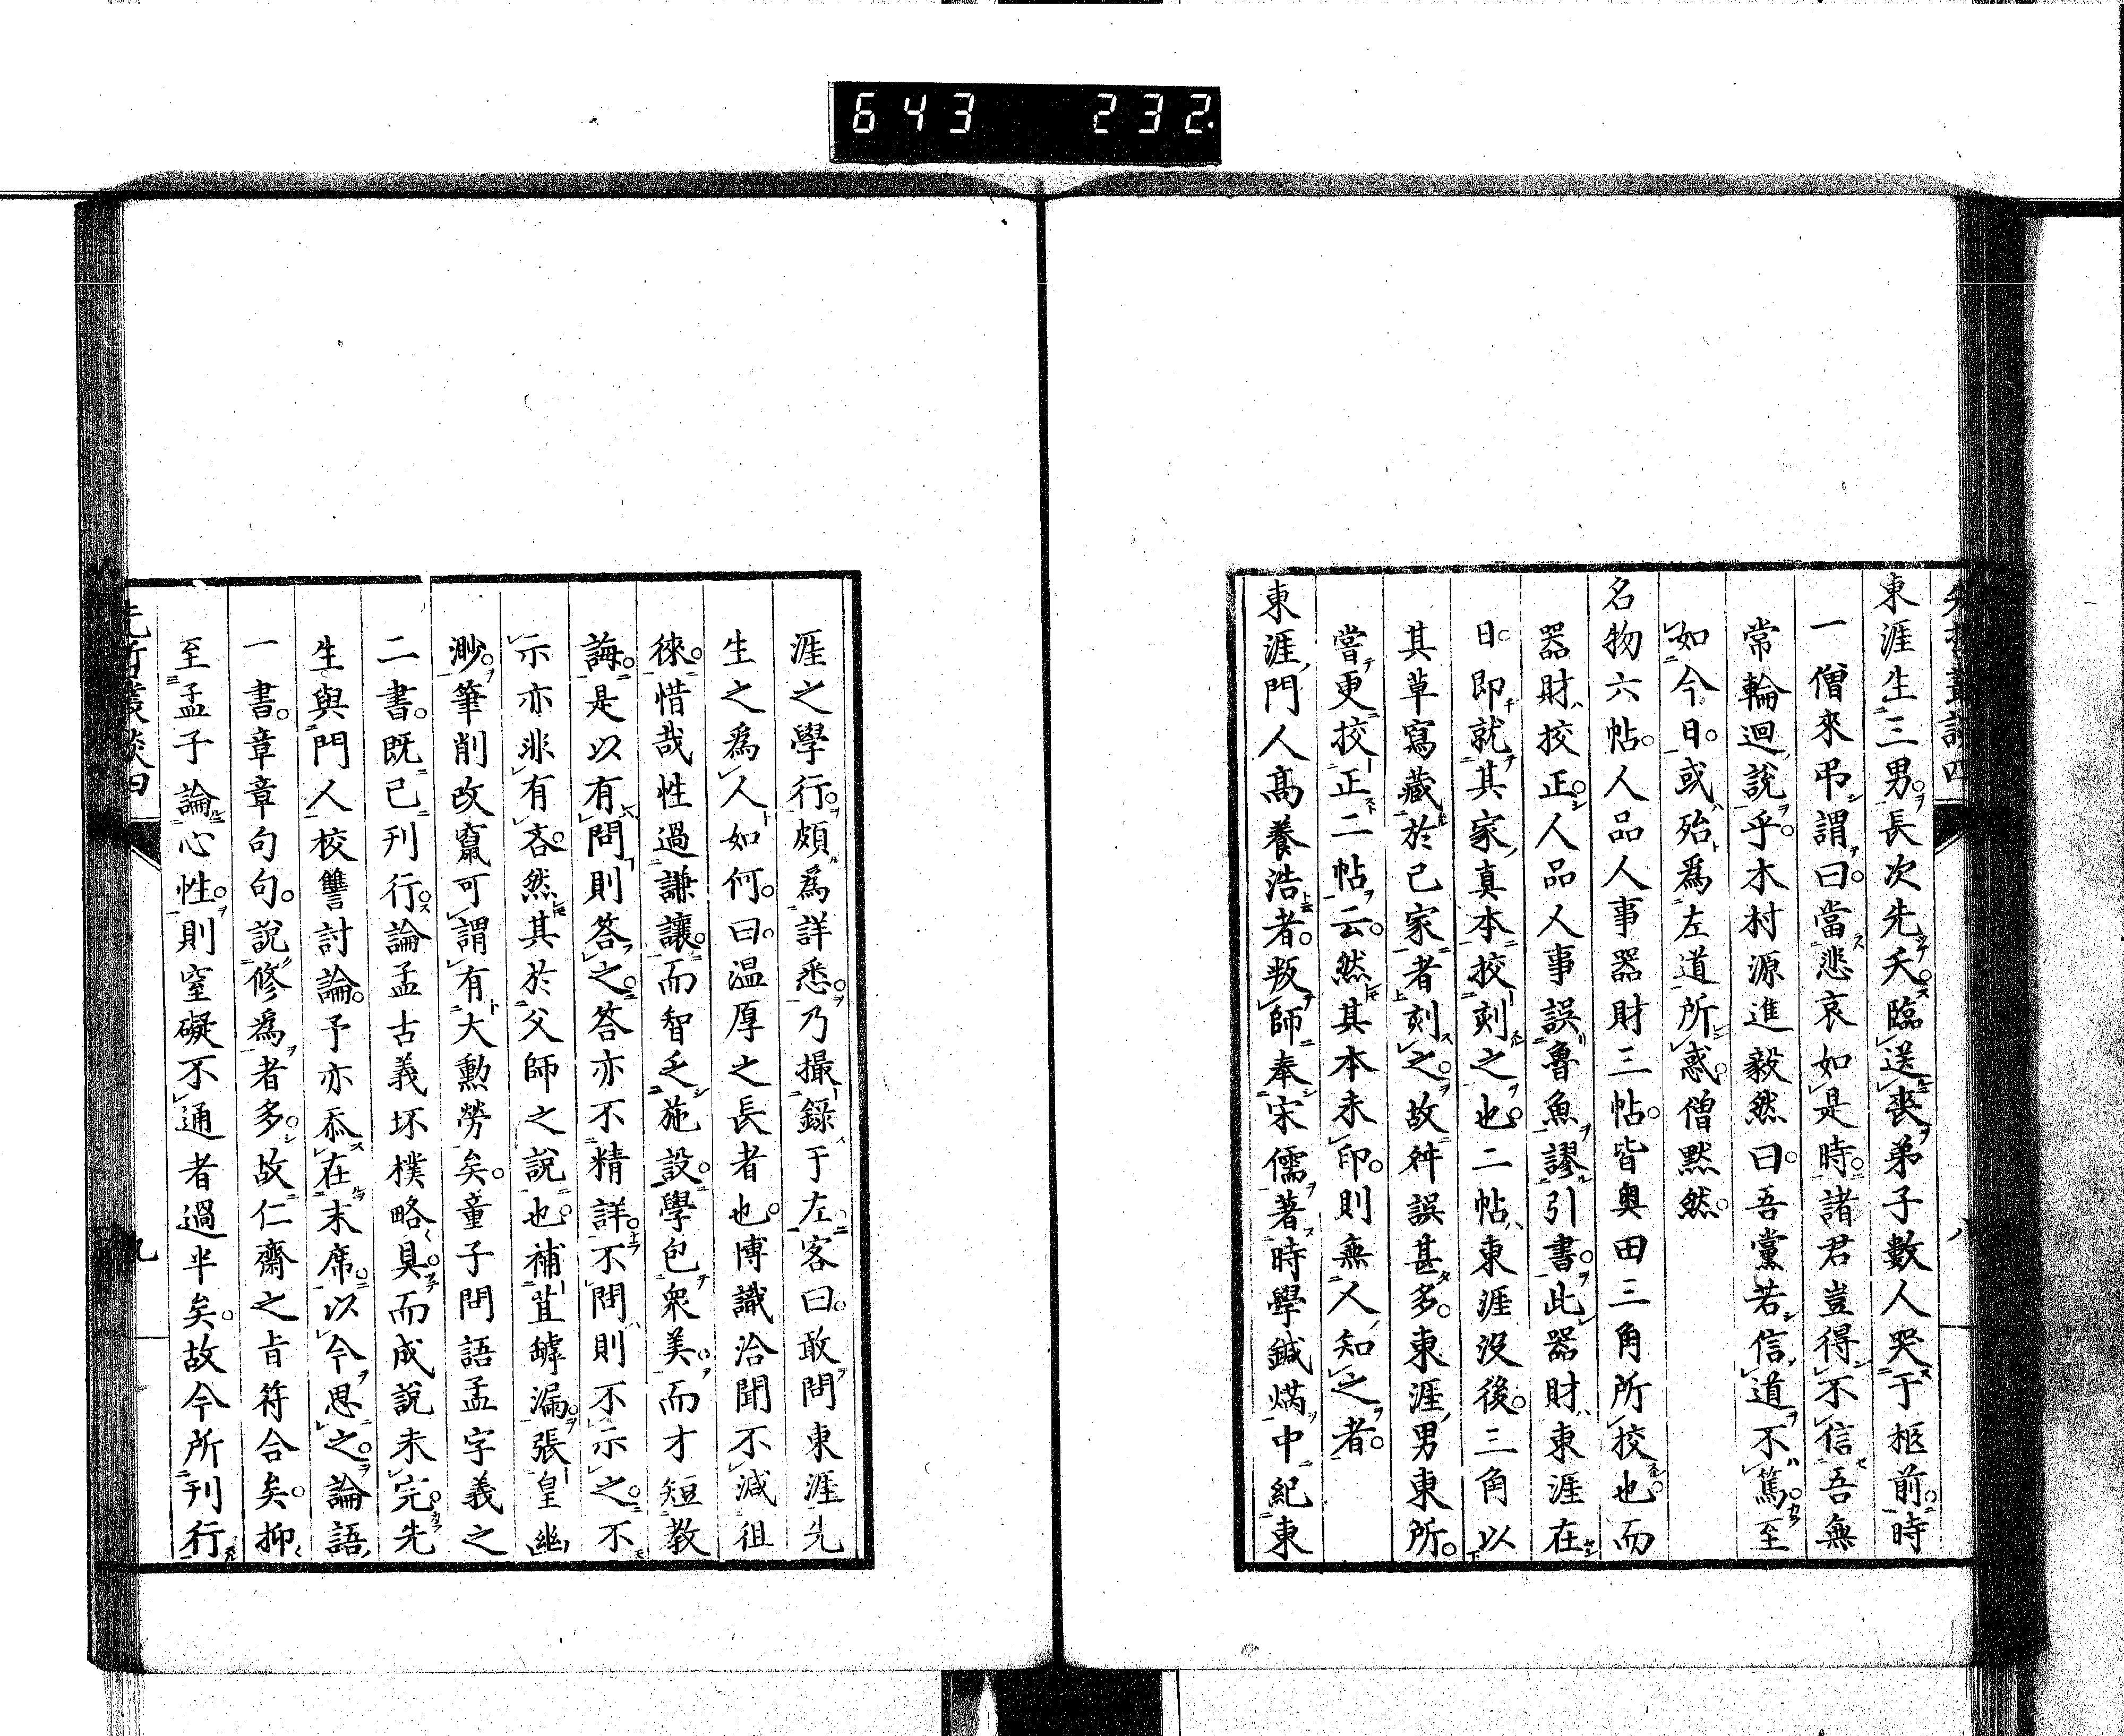 643 232.
先哲叢談四
八
東涯生三男。長次先夭。臨送喪弟子數人哭于柩前。時
一僧來弔謂曰。當悲哀如是時。諸君豈得不信吾無
常輪迴說乎。木村源進毅然曰。吾黨若信道不篤。至
如今日。或殆爲左道所惑。僧默然。
名物六帖。人品人事器財三帖。皆奥田三角所挍也。而
器財挍正。人品人事誤魯魚謬引書。此器財東涯在
日。即就其家真本挍刻之也。二帖東涯沒後。三角以
其草寫藏於己家者刻之。故舛誤甚多。東涯男東所。
嘗更挍正二帖云。然其本未印。則無人知之者。
東涯門人髙養浩者。叛師奉宋儒著時學鍼焫中紀東
涯之學行。頗爲詳悉。乃撮錄于左。客曰。敢問東涯先
生之爲人如何。曰。温厚之長者也。博識洽聞不減徂
徠。惜哉性過謙讓。而智乏施設。學包衆美。而才短教
誨。是以有問則答之。答亦不精詳。不問則不示之。不
示亦非有吝。然其於父師之說也。補苴罅漏。張皇幽
渺。筆削改竄可謂有大勳勞矣。童子問語孟字義之
二書。既已刊行。論孟古義坏樸略具。而成說未完。先
生與門人校讐討論。予亦忝在末席。以今思之。論語
一書。章章句句。說修爲者多。故仁齋之旨符合矣。抑
至孟子論心性。則窒礙不通者過半矣。故今所刊行
先哲叢談四
九